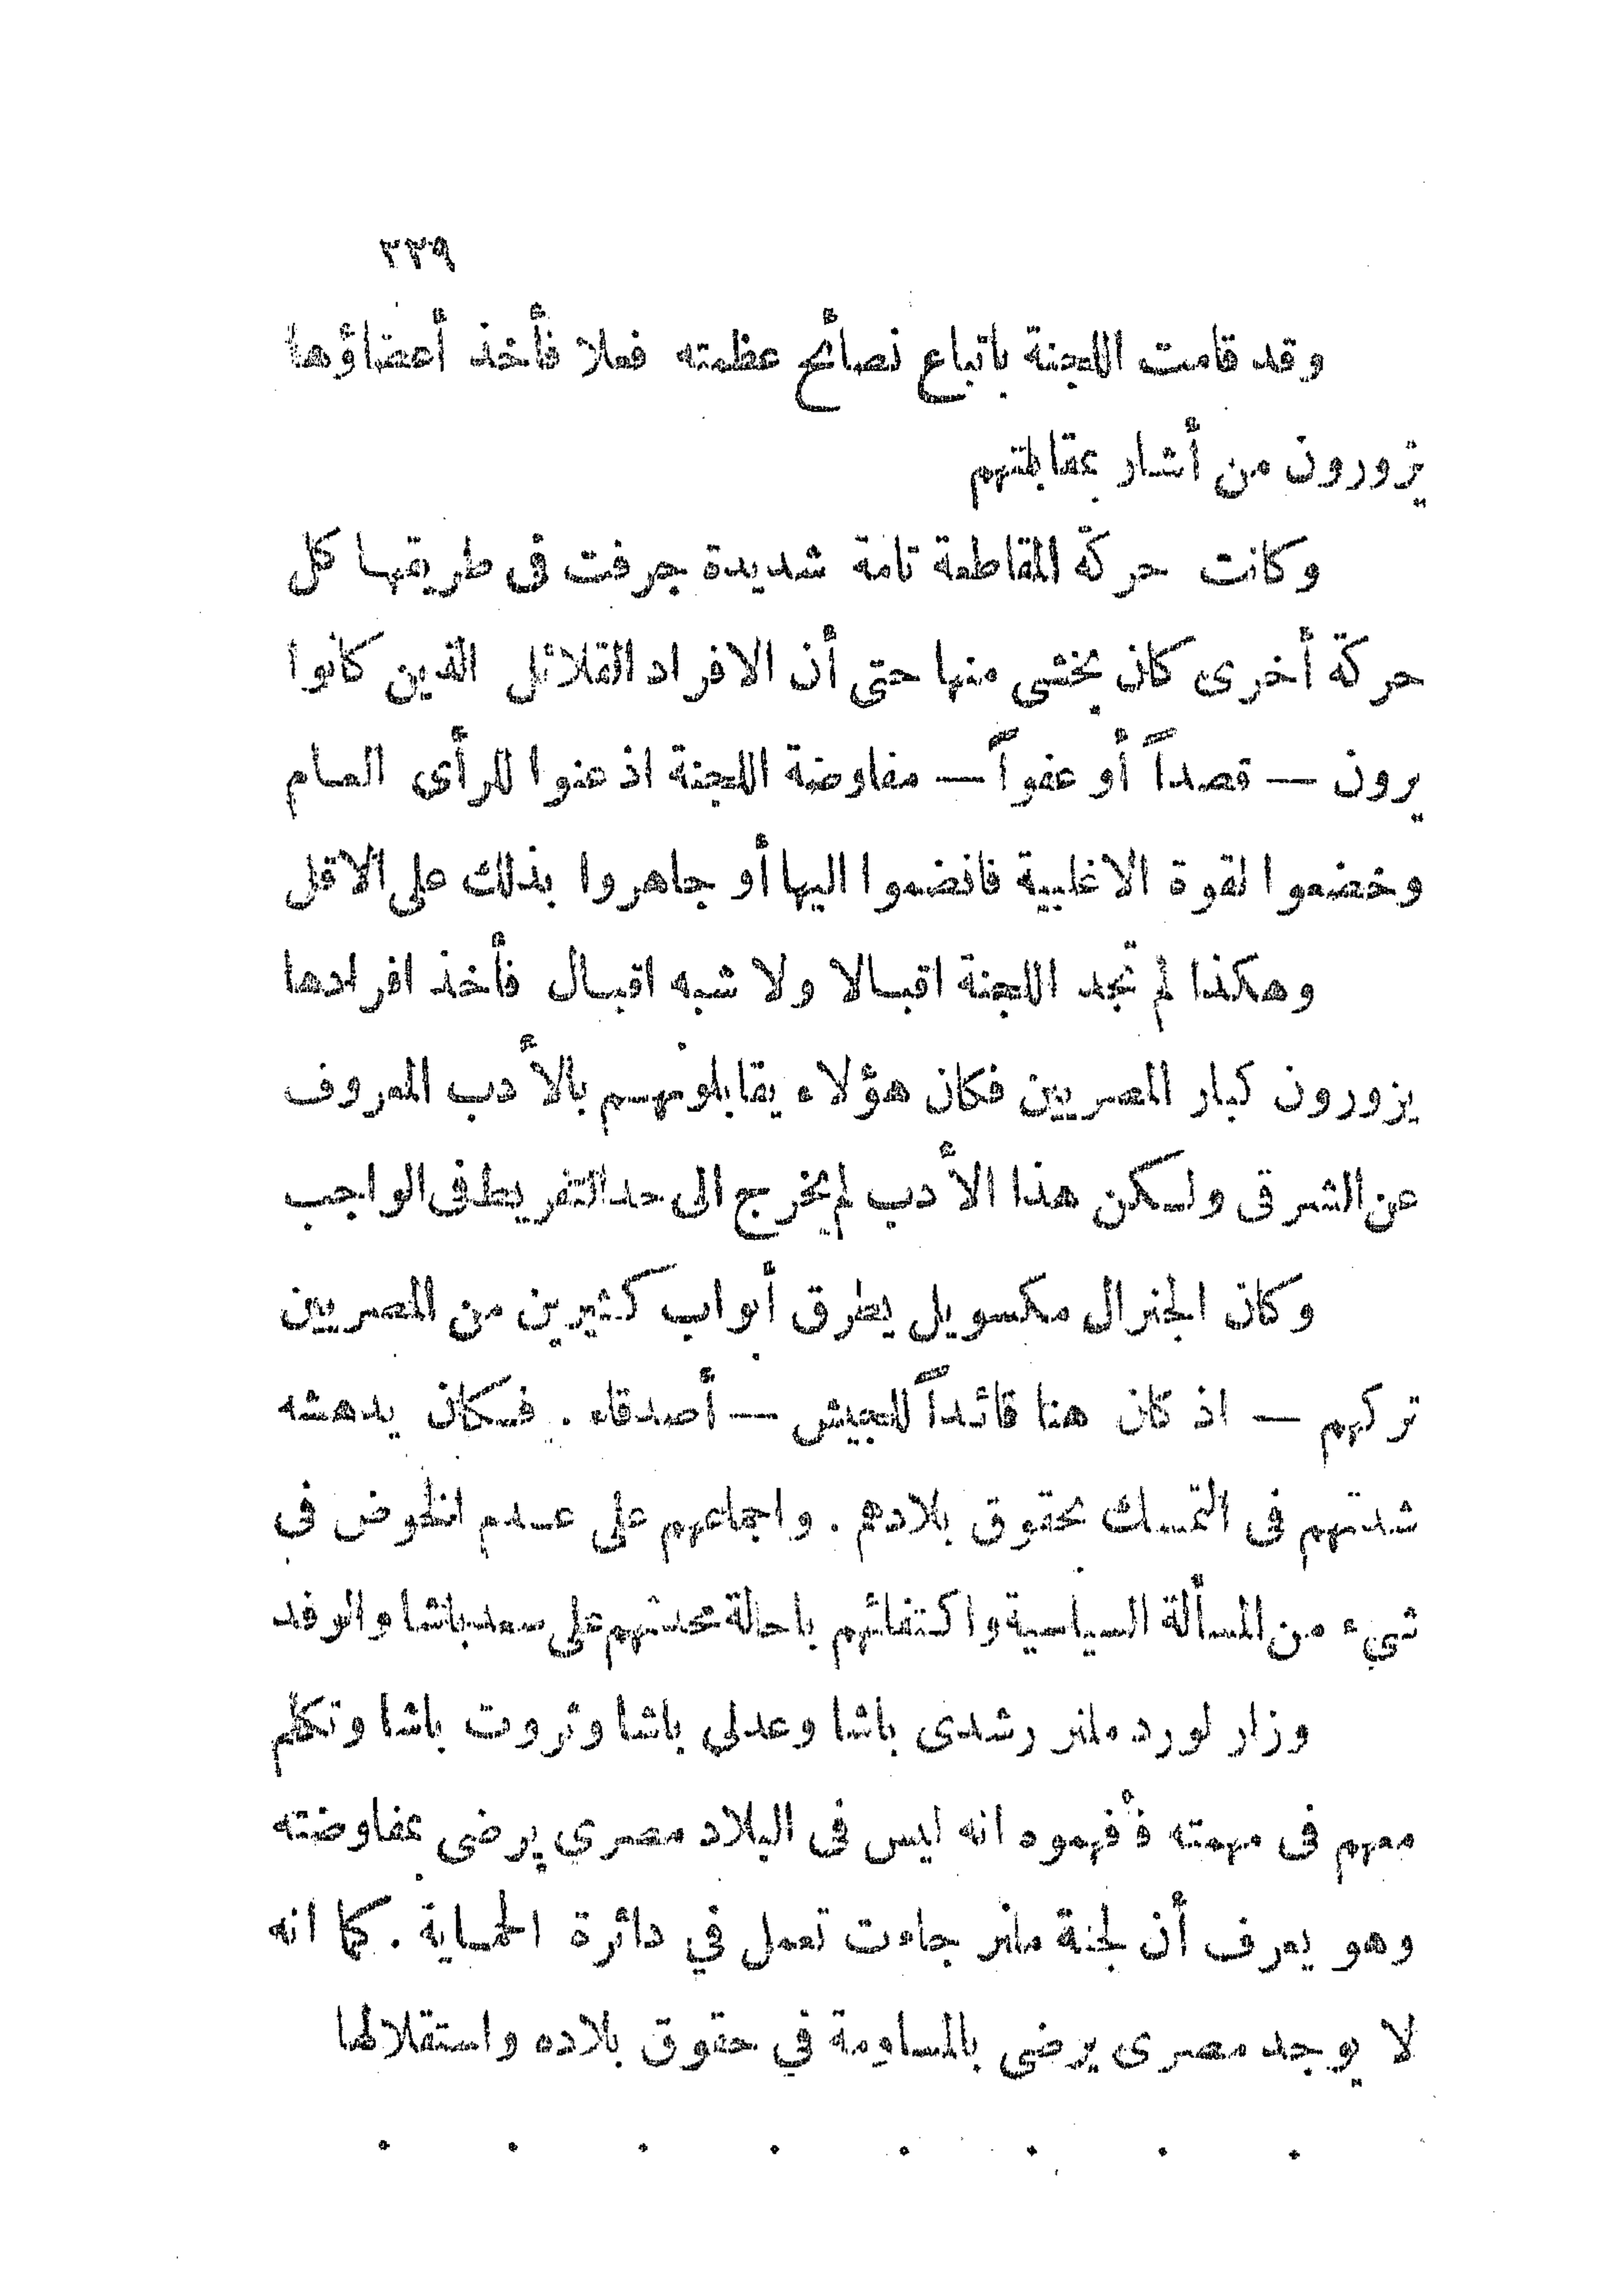 ٢٣٩
وقد قامت اللجنة باتباع نصائح عظمته فعلا فأخذ أعضاؤها
يزورون من أشار بمقابلتهم
وكانت حركة المقاطعة تامة شديدة جرفت فى طريقها كل
حركة أخرى كان يخشى منها حتى أن الافراد القلائل الذين كانوا
يرون — قصداً أو عفواً — مفاوضة اللجنة اذعنوا للرأى العام
وخضعوا لقوة الاغلبية فانضموا اليها أو جاهروا بذلك على الاقل
وهكذا لم تجد اللجنة اقبالا ولا شبه اقبال فأخذ افرادها
يزورون كبار المصريين فكان هؤلاء يقابلونهم بالأدب المعروف
عن الشرق ولكن هذا الأدب لم يخرج الى حد التفريط فى الواجب
وكان الجنرال مكسويل يطرق أبواب كثيرين من المصريين
تركهم — اذ كان هنا قائداً للجيش — أصدقاء . فكان يدهشه
شدتهم فى التمسك بحقوق بلادهم . واجماعهم على عدم الخوض في
شيء من المسألة السياسية واكتفائهم باحالة محدثهم على سعد باشا والوفد
وزار لورد ملنر رشدى باشا وعدلي باشا وثروت باشا وتكلم
معهم فى مهمته فأفهموه انه ليس فى البلاد مصري يرضى بمفاوضته
وهو يعرف أن لجنة ملنر جاءت تعمل في دائرة الحماية . كما انه
لا يوجد مصرى يرضى بالمساومة في حقوق بلاده واستقلالها
. . . . . . . .